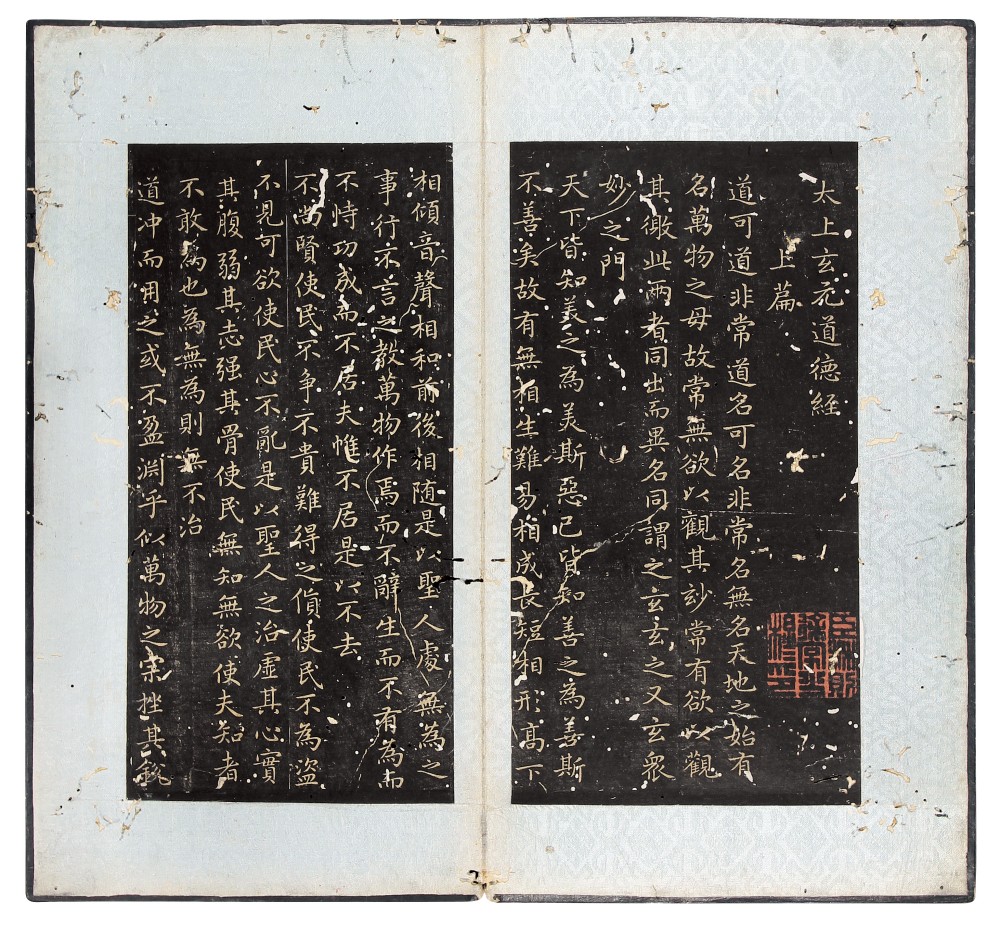 太上玄元道德經
上篇
道可道非常道名可名非常名無名天地之始有
名萬物之母故常無欲以觀其妙常有欲以觀
其徼此兩者同出而異名同謂之玄玄之又玄眾
妙之門
天下皆知美之為美斯惡已皆知善之為善斯
不善矣故有無相生難易相成長短相形高下
相傾音聲相和前後相随是以聖人處無為之
事行不言之教萬物作焉而不辭生而不有為而
不恃功成而不居夫惟不居是以不去
不尚賢使民不争不貴難得之貨使民不為盜
不見可欲使民心不亂是以聖人之治虛其心實
其腹弱其志强其骨使民無知無欲使夫知者
不敢為也為無為則無不治
道冲而用之或不盈淵乎似萬物之宗挫其銳